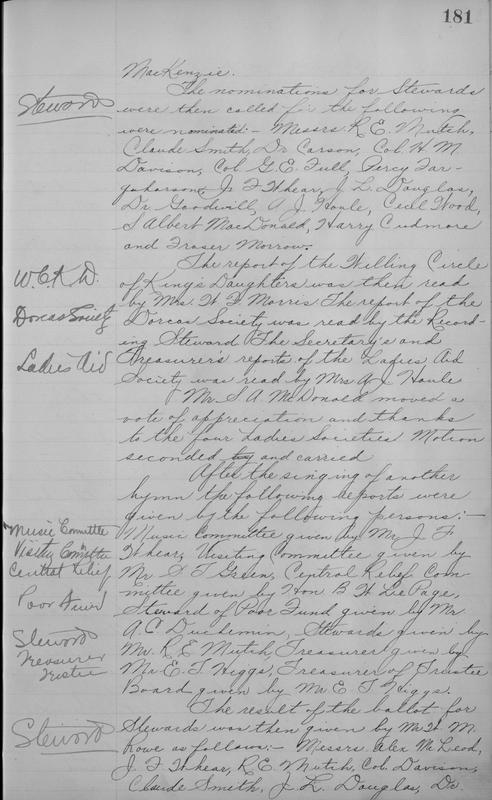 181
MacKenzie.
The nominations for Stewards
Steward
were then called for the following
were nominated:- Messrs R.E. Mutch,
Claude Smith, Dr Carson, Col. H M.
Davison, Col. G.E. Full, Percy Far-
quharson, J. F. Whear, J. L. Douglas,
Dr. Goodwill, A J. Houle, Cecil Wood,
S Albert MacDonald, Harry Cudmore
and Fraser Morrow.
The report of the Willing Circle
W.C.K D.
of King's Daughters was then read
by Mrs. W F Morris The report of the
Dorcas Society
Dorcas Society was read by the Record-
ing Steward The Secretary's and
Ladies Aid
Treasurer's reports of the Ladies Aid
Society was read by Mrs A J. Houle
Mr. S A McDonald moved a
vote of appreciation and thanks
to the four Ladies Societies Motion
seconded and carried
After the singing of another
hymn the following reports were
given by the following persons:-
Music Committee
Music Committee given by Mr. J. F
Visiting Committee
Whear, Visiting Committee given by
Central Relief
Mr S T Green, Central Relief Com-
mittee given by Hon B W LePage,
Poor Fund
Steward of Poor Fund given by Mr.
A.C. Duchemin, Stewards given by
Steward
Mr. R E Mutch, Treasurer given by
Treasurer
Mr E. T Higgs, Treasurer of Trustee
Trustee
Board given by Mr E. T Higgs.
The result of the ballot for
Steward
Stewards was then given by Mr. M.
Rowe as follows:- Messrs. Alex McLeod,
J. F Whear, R.E. Mutch, Col. Davison,
Claude Smith, J. L. Douglas, Dr.